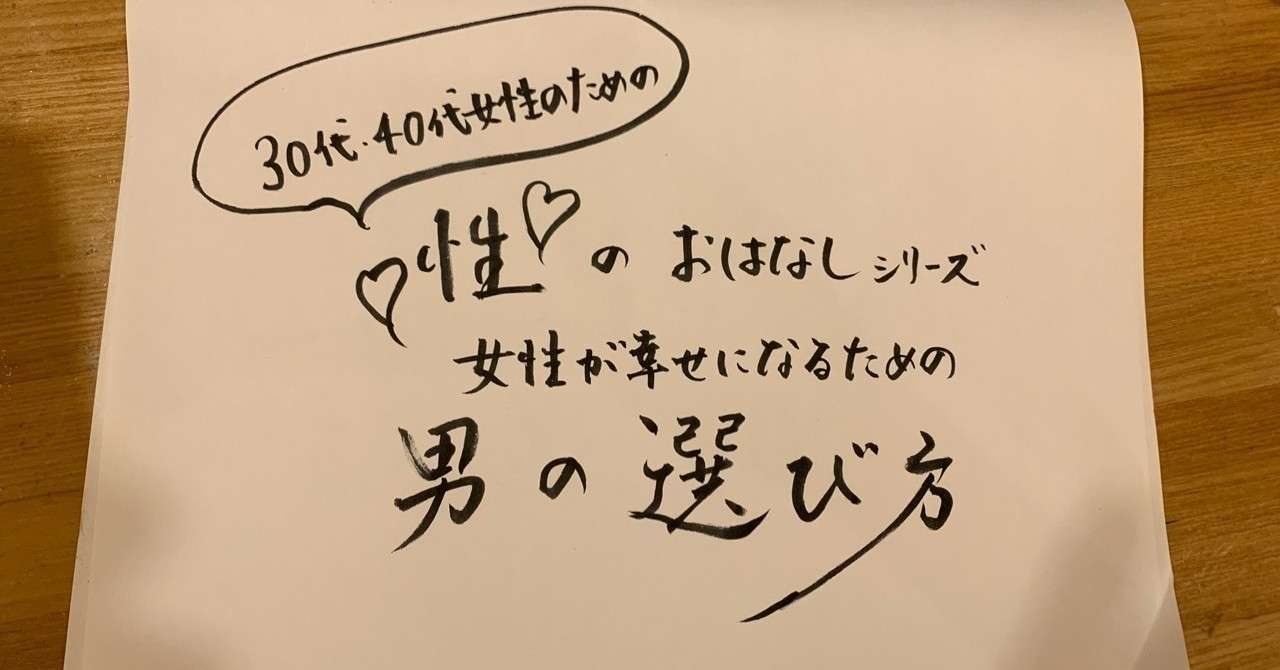 30代・40代女性のための
性のおはなしシリーズ
女性が幸せになるための
男の選び方